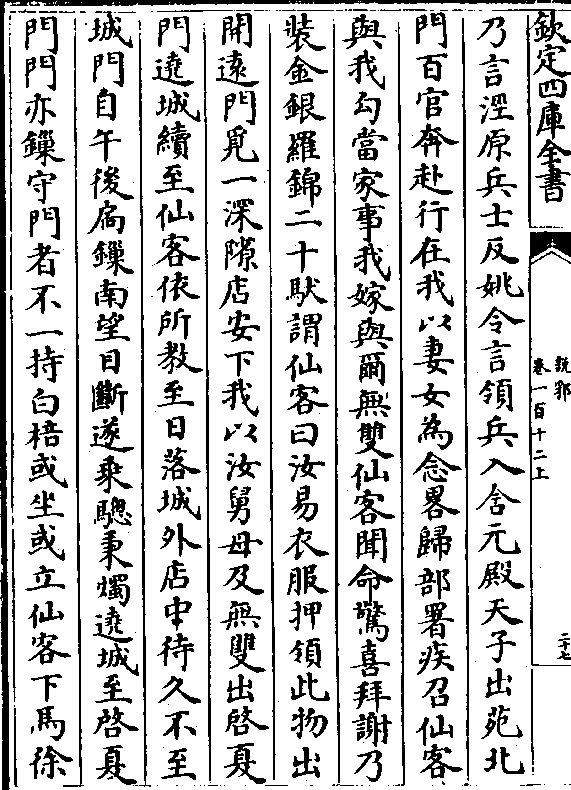 欽定四庫全書
説郛
卷一百十二上
二十七
乃言涇原兵士反姚令言領兵入含元殿天子出苑北
門百官奔赴行在我以妻女為念畧歸部署疾召仙客
與我勾當家事我嫁與爾無雙仙客聞命驚喜拜謝乃
裝金銀羅錦二十馱謂仙客曰汝易衣服押領此物出
開遠門覓一深隙店安下我以汝舅母及無雙出啓夏
門遶城續至仙客依所教至日落城外店中待久不至
城門自午後扃鏁南望目斷遂乘驄秉燭遶城至啓夏
門門亦鏁守門者不一持白棓或坐或立仙客下馬徐